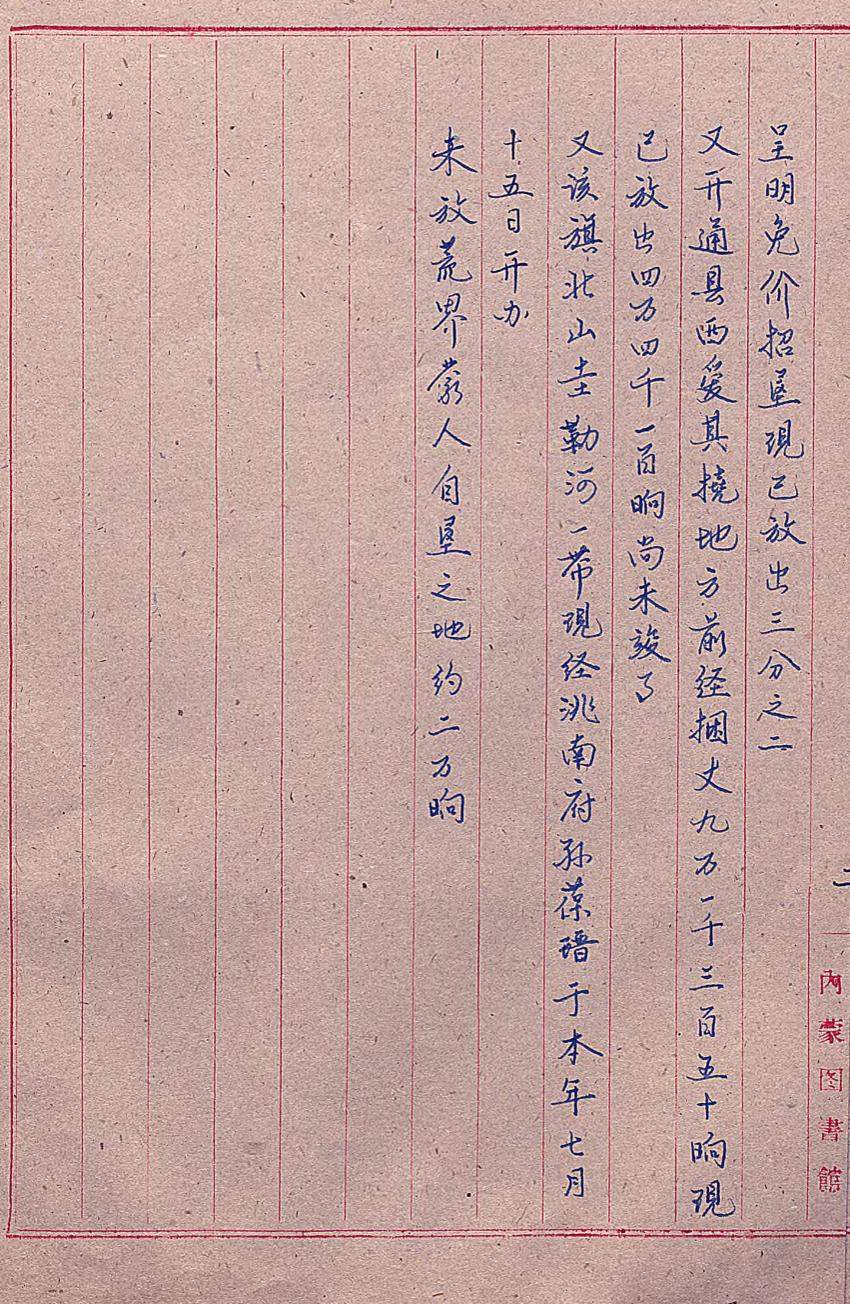 二
内蒙图書館
呈明免价招垦现已放出三分之二
又开通县西爱其挠地方前经捆丈九万一千三百五十晌现
已放出四万四千一百晌尚未竣了
又该旗北山圭勒河一带现经洮南府孙葆瑨于本年七月
十五日开办
未放荒界蒙人自垦之地约二万晌